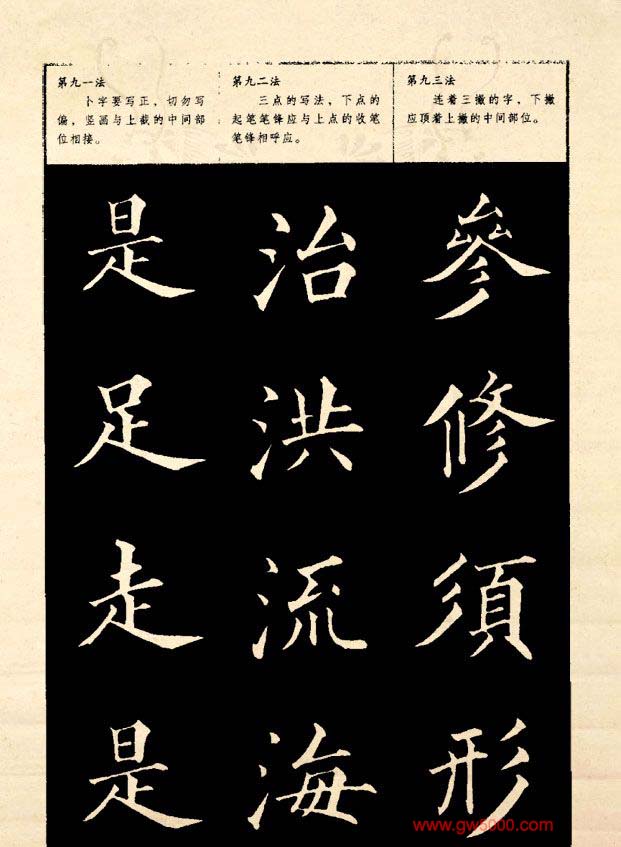 第九一法
卜字要写正，切勿写
偏，竖画与上截的中间部
位相接。
第九二法
三点的写法，下点的
起笔笔锋应与上点的收笔
笔锋相呼应。
第九三法
连着三撇的字，下撇
应顶着上撇的中间部位。
是 治 參
足 洪 修
走 流 須
是 海 形
www.gw5000.com